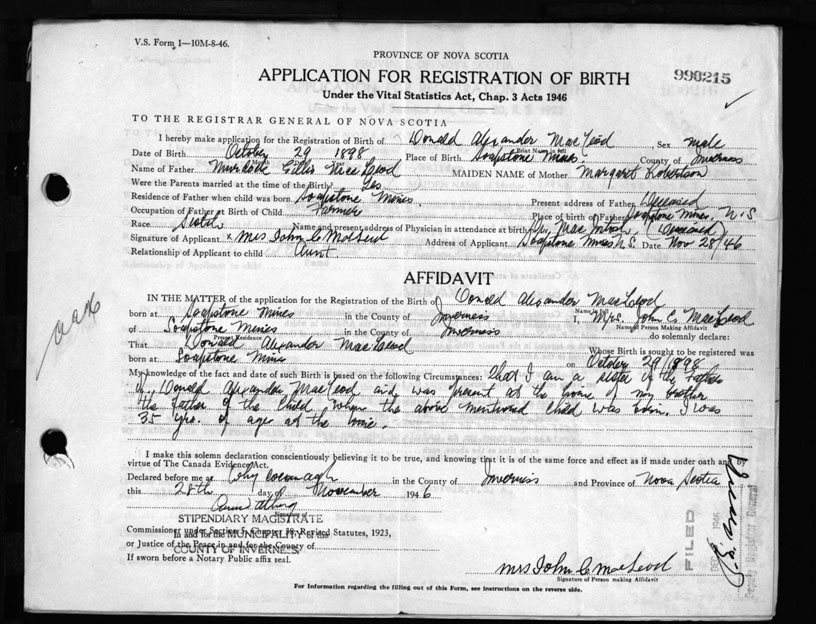 V.S. Form 1—10M-8-46.
PROVINCE OF NOVA SCOTIA
APPLICATION FOR REGISTRATION OF BIRTH
998215
Under the Vital Statistics Act, Chap. 3 Acts 1946
TO THE REGISTRAR GENERAL OF NOVA SCOTIA
I hereby make application for the Registration of Birth of Donald Alexander MacLeod Sex male
Date of Birth October 29 1898 Place of Birth Soapstone Mines County of Inverness
Name of Father Murdock Gillis MacLeod MAIDEN NAME of Mother Margaret Robertson
Were the Parents married at the time of the Birth? Yes
Residence of Father when child was born Soapstone Mines. Present address of Father Deceased
Occupation of Father at Birth of Child Farmer Place of birth of Father Soapstone Mines, N.S
Race Scotch Name and present address of Physician in attendance at birth (Deceased)
Signature of Applicant x Mrs John C MacLeod Address of Applicant Soapstone Mines N.S. Date Nov 28/46
Relationship of Applicant to child Aunt.
AFFIDAVIT
IN THE MATTER of the application for the Registration of the Birth of Donald Alexander MacLeod
born at Soapstone Mines in the County of Inverness I, Mrs. John C. MacLeod
Name of Person Making Affidavit
of Soapstone Mines in the County of Inverness do solemnly declare:
Present Residence
That Donald Alexander MacLeod Whose Birth is sought to be registered was
born at Soapstone Mines on October 29/1898
My knowledge of the fact and date of such Birth is based on the following Circumstances: that I am a sister of the father
of Donald Alexander MacLeod and was present at the home of my brother
the father of the child, when the above mentioned child was born. I was
35 yrs. of age at the time.
I make this solemn declaration conscientiously believing it to be true, and knowing that it is of the same force and effect as if made under oath and by
virtue of The Canada Evidence Act.
Declared before me at in the County of Inverness and Province of Nova Scotia
this 28th day of November 1946
STIPENDIARY MAGISTRATE
Commissioner under Section 5, Chapter 38 Revised Statutes, 1923,
in and for the MUNICIPALITY of the
or Justice of the Peace in and for the County of
COUNTY OF INVERNESS
If sworn before a Notary Public affix seal.
Mrs John C MacLeod
Signature of Person making Affidavit
For Information regarding the filling out of this Form, see instructions on the reverse side.
FILED
1946
Deputy Registrar General